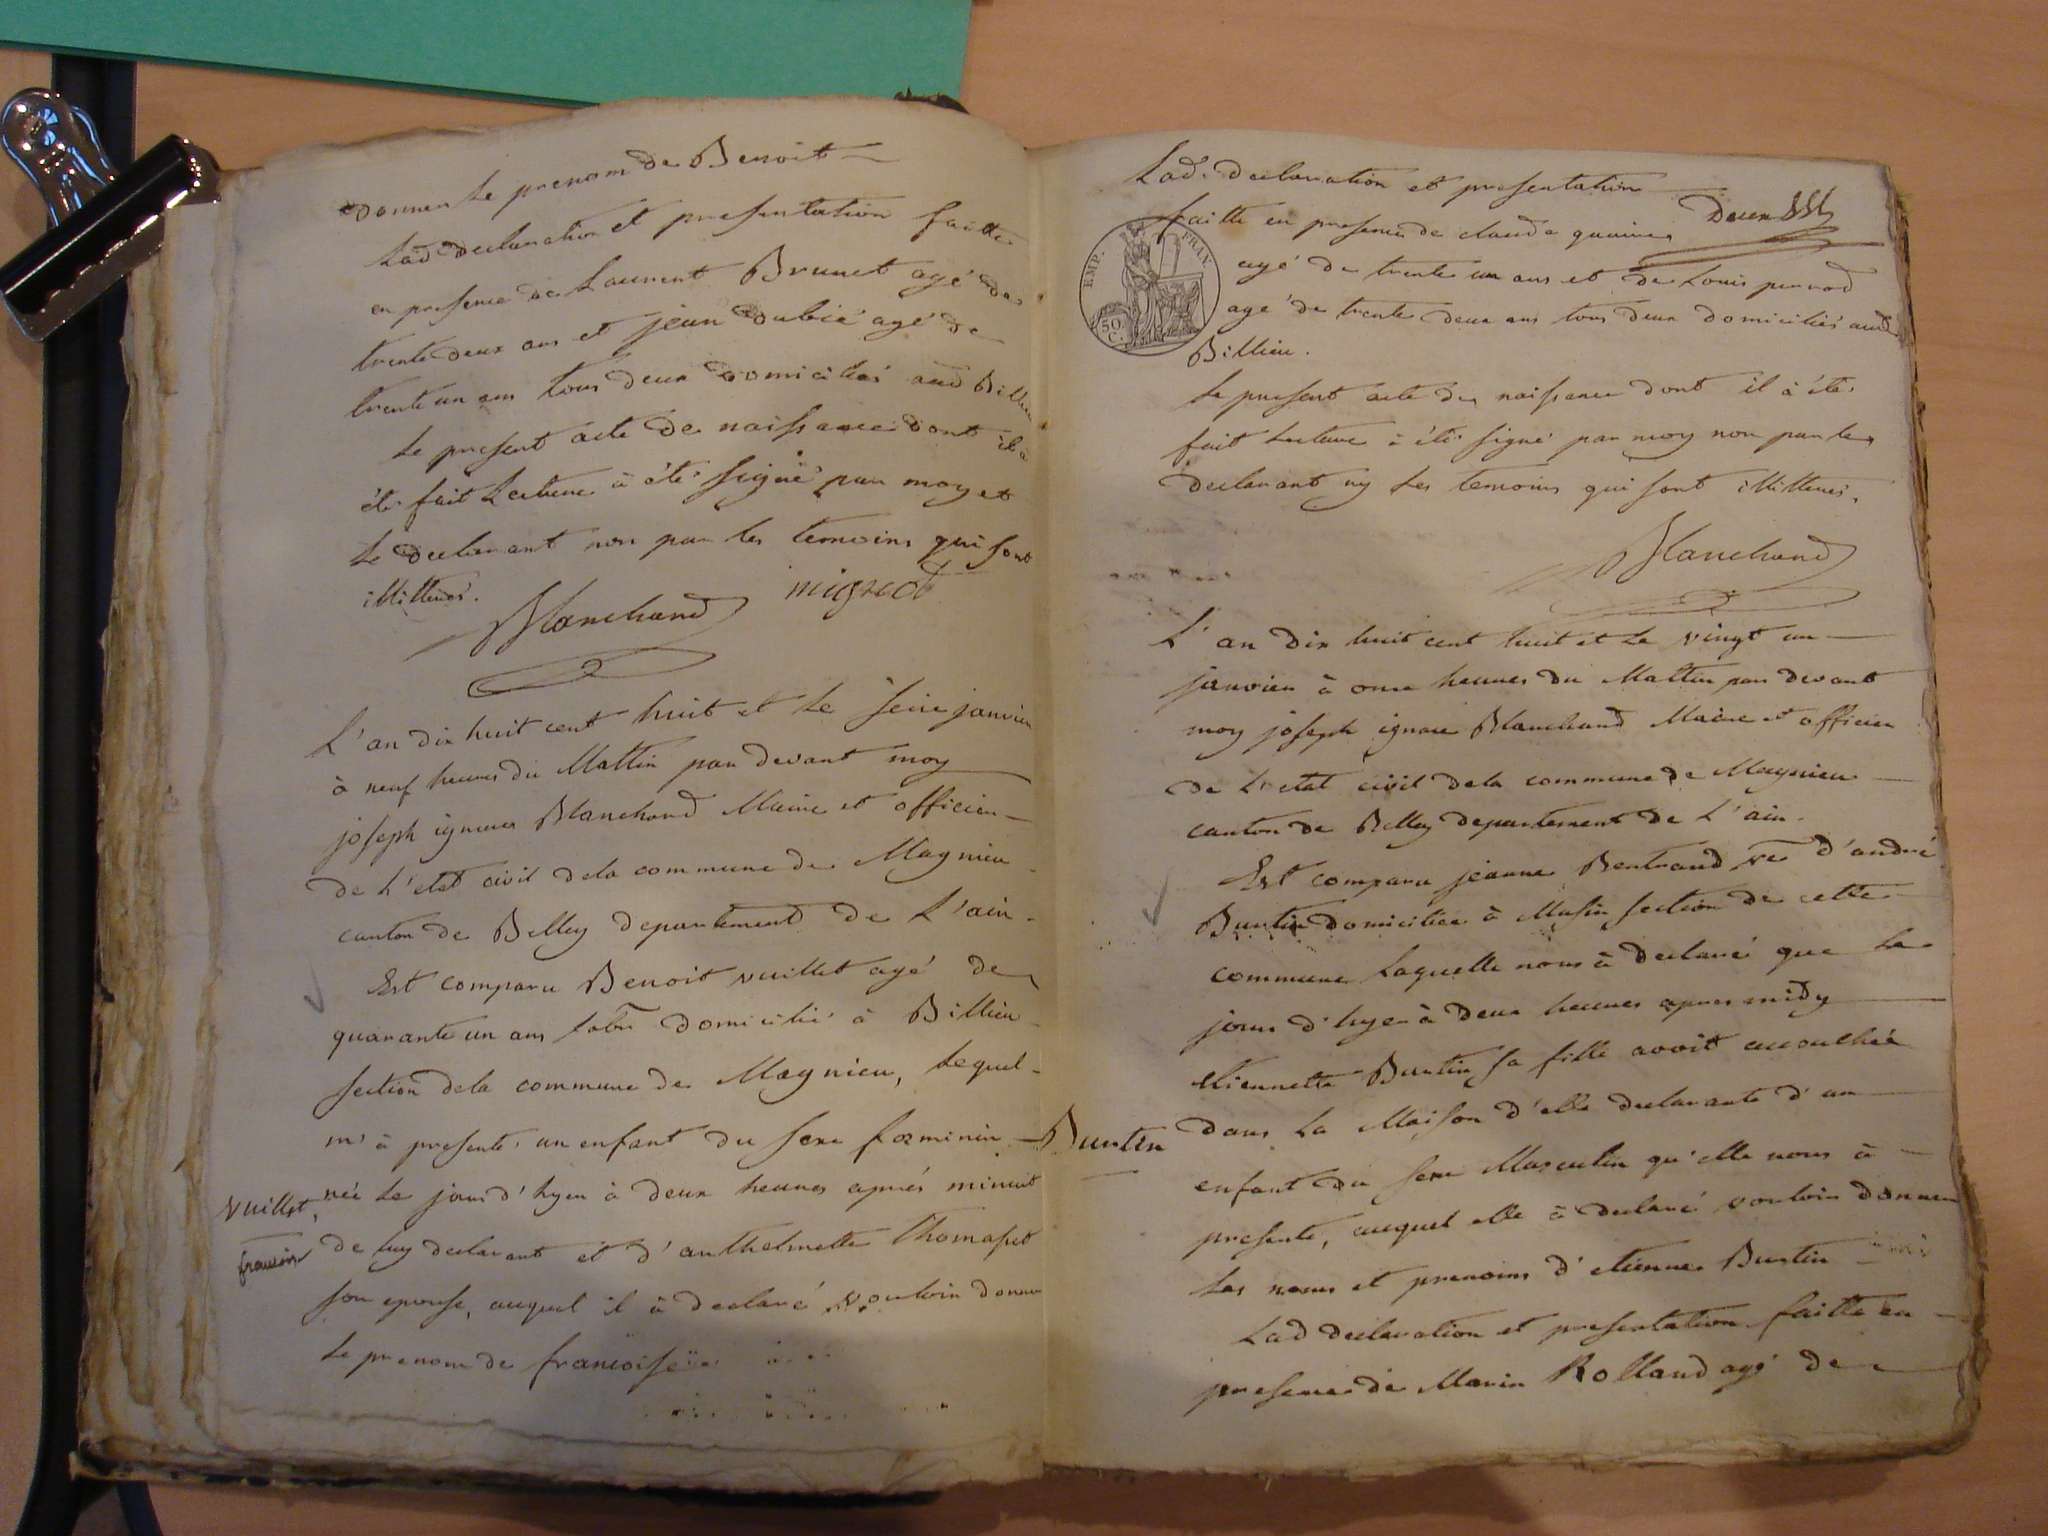 donner le prenom de Benoit
Lad. declaration et presentation faitte
en presence de Laurent Brunet agé de
trente deux ans et jean dubié agé de
trente un ans tous deux domiciliés aud Billieu
Le present acte de naissance dont il a
été fait Lecture à été signé par moy et
le declarant non par les temoins qui sont
illitterés.
Blanchard mignod
L'an dix huit cent huit et le seize janvier
à neuf heures du Mattin par devant moy
joseph ignace Blanchard Maire et officier
de L'etat civil de la commune de Magnieu
canton de Belley departement de L'ain.
Est comparu Benoit vuillet agé de
quarante un ans labr domicilié à Billieu
section de la commune de Magnieu, Lequel
m'à presenté un enfant du sexe foeminin
née Le jour d'hyer à deux heures aprés minuit
vuillet,
francoise
de luy declarant et d'anthelmette Thomasset
son epouse, auquel il à declaré vouloir donner
Le prenom de francoise
Lad. declaration et presentation
faitte en presence de claude
EMP. FRAN.
50 C.
agé de trente un ans et de Louis pernod
agé de trente deux ans tous deux domiciliés aud
Billieu.
Le present acte de naissance dont il à été
fait Lecture à été signé par moy non par le
declarant ny les temoins qui sont illitterés.
Blanchard
L'an dix huit cent huit et Le vingt un
janvier à onze heures du Mattin par devant
moy joseph ignace Blanchard Maire et officier
de L'etat civil de la commune de Magnieu
canton de Belley departement de L'ain.
Est comparu jeanne Bertrand ve d'andré
Burtin domiciliée à Musin section de cette
commune Laquelle nous à declaré que Le
jour d'hyer à deux heures apres midy
etiennette Burtin sa fille avoit accouchée
Burtin
dans La Maison d'elle declarante d'un
enfant du sexe Masculin qu'elle nous à
presenté, auquel elle à declaré vouloir donner
Les noms et prenoms d'etienne Burtin
Lad declaration et presentation faitte en
presence de Marin Rolland agé de